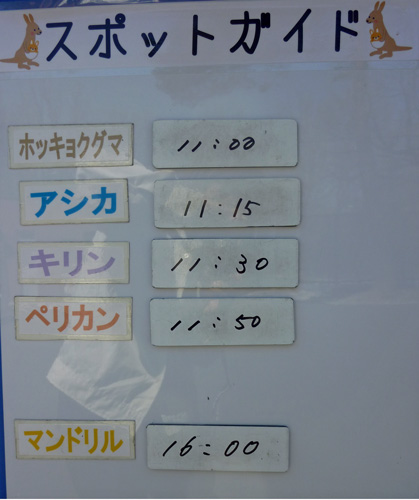 スポットガイド
ホッキョクグマ 11:00
アシカ 11:15
キリン 11:30
ペリカン 11:50
マンドリル 16:00